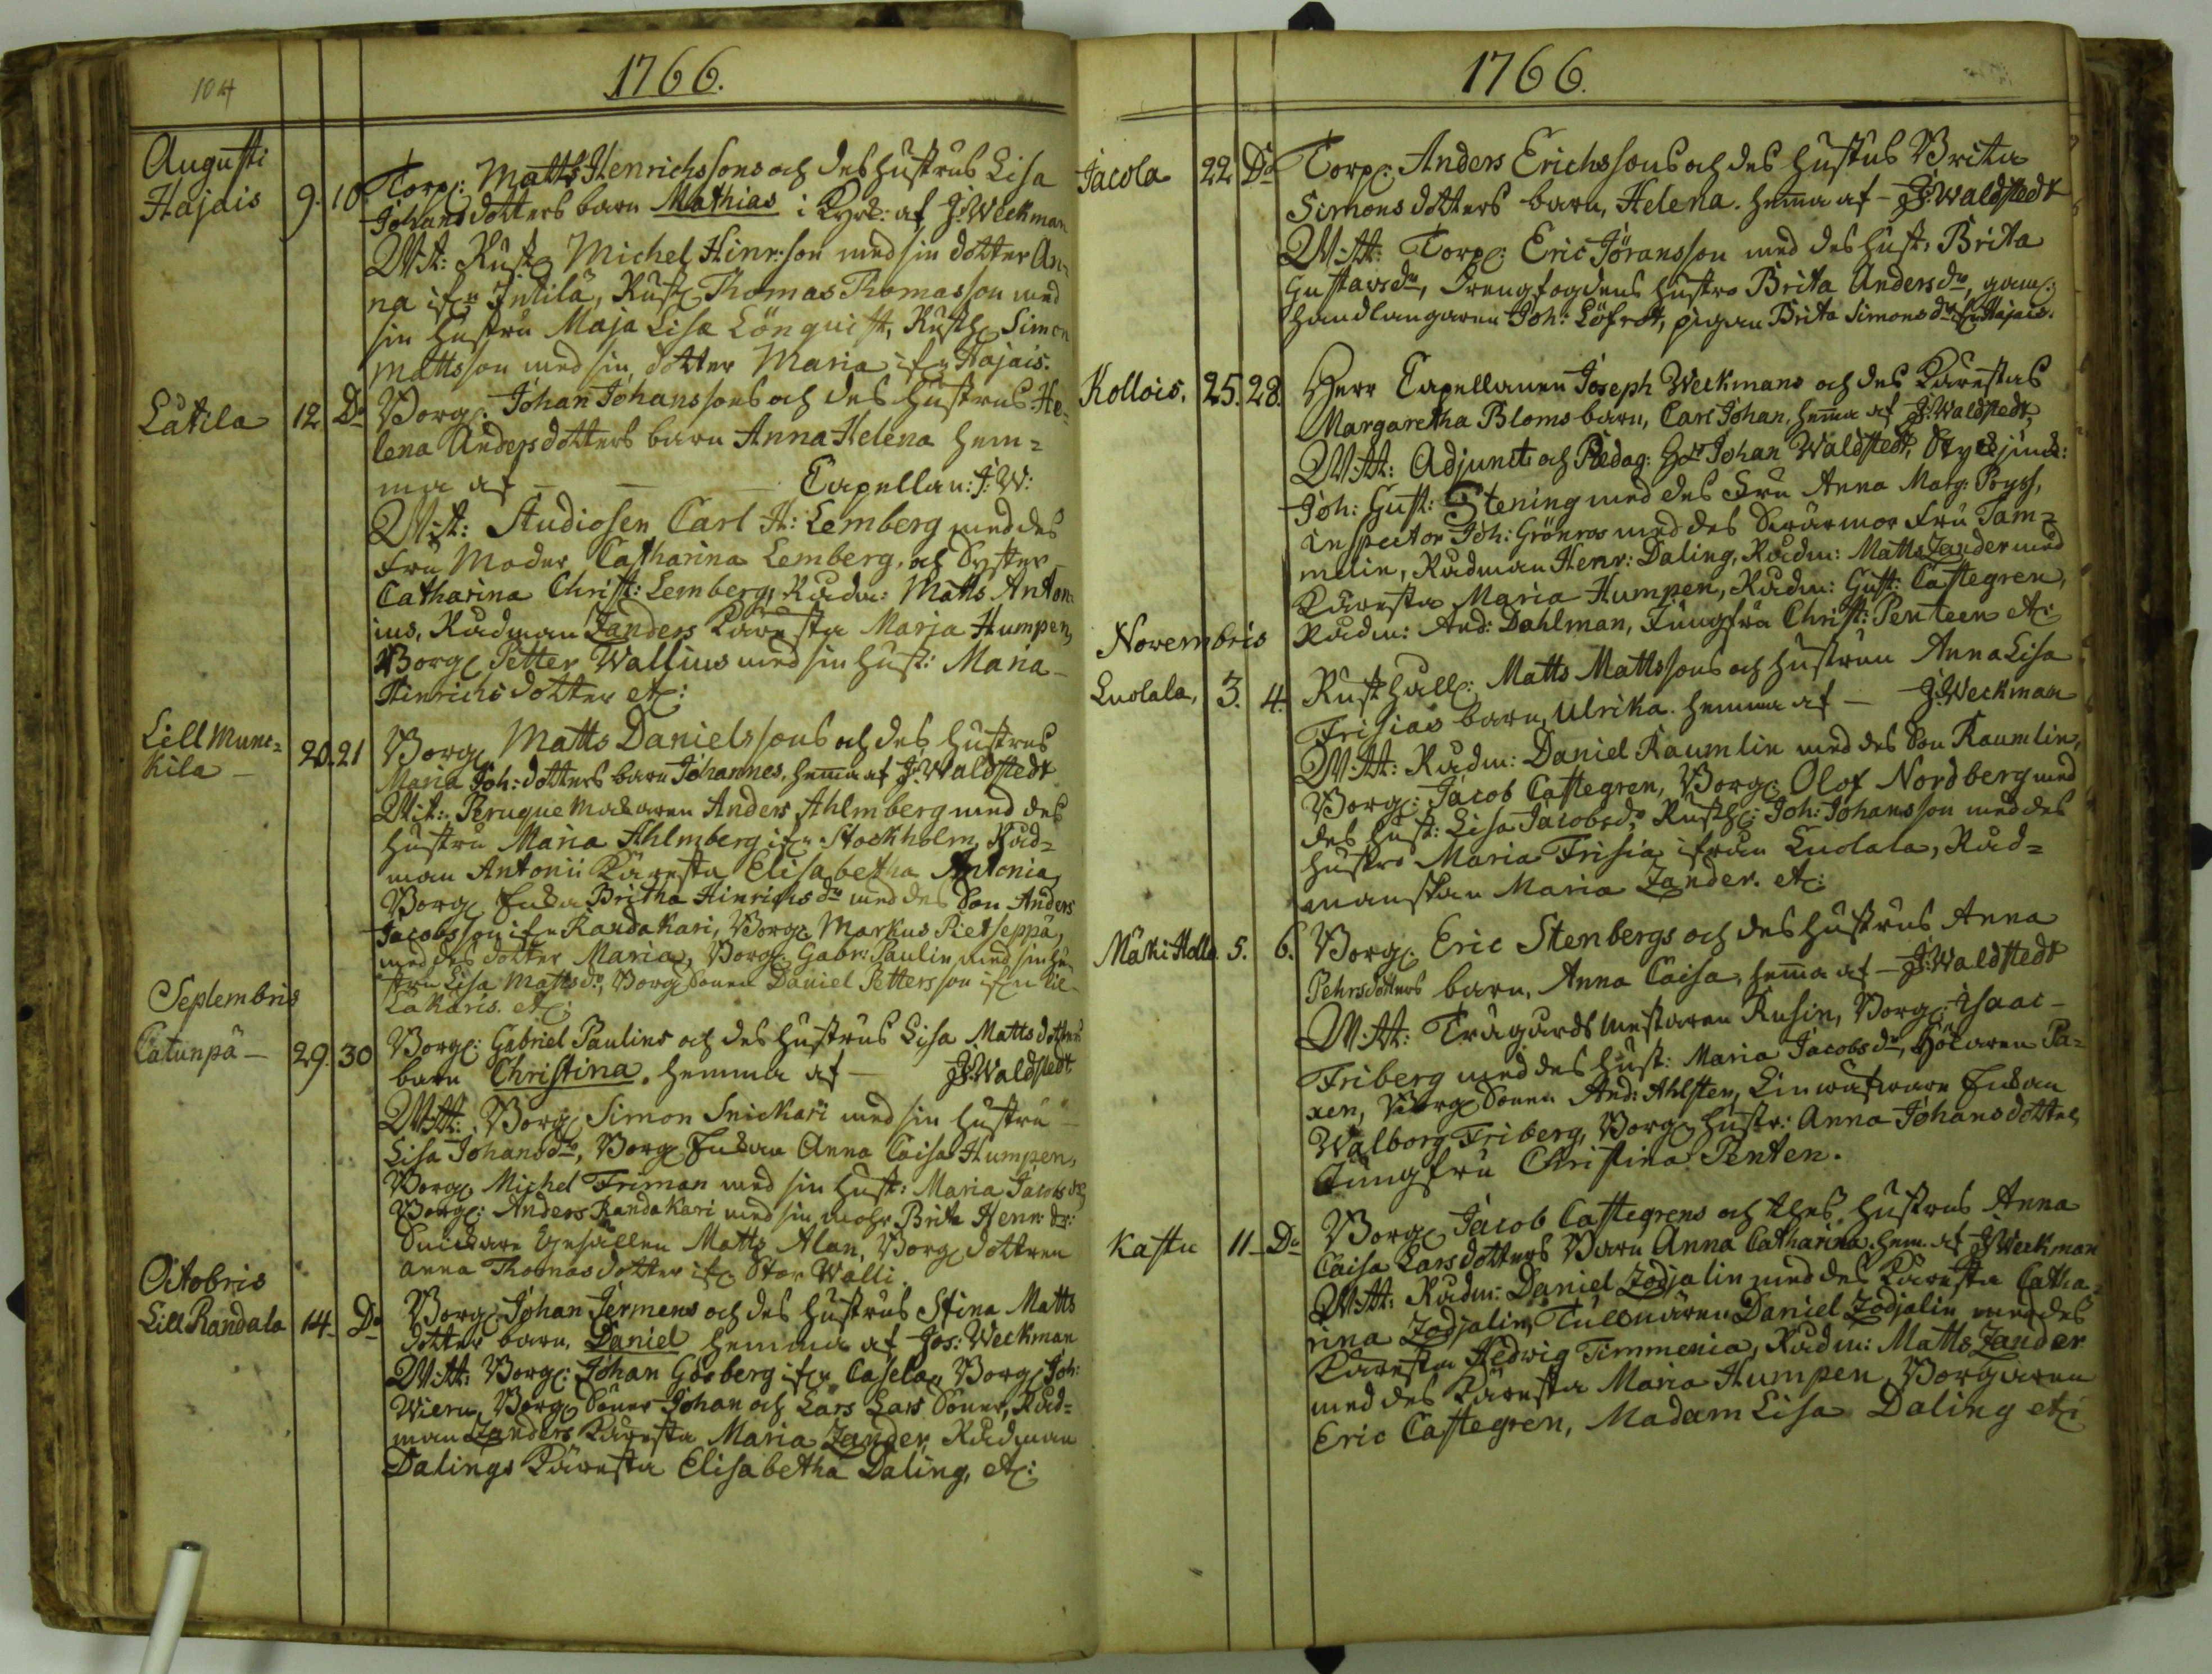 104
1766.
Augusti
Hajais 9. 10. Torp: Matts Henrichssons och des hustrus Lisa
Johans dotters barn Mathias i Kyrk: af J: Weckman
Witt: Rusth Michel Hinr:son med sin dotter An-
na ifr Intilä, Rusth Thomas Thomasson med
sin hustru Maja Lisa Lönquist, Rusth Simon
Mattsson med sin dotter Maria ifr Hajais.
Latila 12 Do Borg: Johan Johanssons och des hustrus He-
lena Andersdotters barn Anna Helena hem-
ma af — — Capellan: J: W:
Witt: Studiosen Carl H: Lemberg med des
Fru Moder Catharina Lemberg, och Syster
Catharina Christ: Lemberg, Rådm: Matts Anton-
ius, Rådman Zanders Käresta Marja Humpen,
Borg Petter Wallius med sin hust: Maria
Hinrichs dotter etc:
Lill Munc-
kila — 20. 21 Borg Matts Danielssons och des hustrus
Maria Joh: dotters barn Johannes, hema af J: Waldstedt
Wit: Peruque Makaren Anders Ahlmberg med des
hustru Maria Ahlmberg ifr Stockholm, Råd-
man Antonii Käresta Elisabetha Antonia,
Borg Enka Britha Hinrichs dr med des Son Anders
Jacobsson ifr Randakari, Borg Markus Pietseppä,
med des dotter Maria, Borg Gabr: Paulin med sin hu-
stru Lisa Matts dr, Borg Sonen Daniel Pettersson ifr Kil-
lakaris. etc:
Septembris
Catunpä — 29. 30 Borg: Gabriel Paulins och des hustrus Lisa Matts dotters
barn Christina, hemma af — J: Waldstedt
Witt: Borg Simon Snickari med sin hustru
Lisa Johans dr, Borg Enkan Anna Caisa Humpen,
Borg Michel Friman med sin hust: Maria Jacobs dr
Borg: Anders Randakari med sin mohr Brita Henr: dr:
Snickare Gesällen Matts Alan, Borg dottren
Anna Thomas dotter ifr Stor Wälli.
Octobris
Lill Randala 14. Do Borg: Johan Jermens och des hustrus Stina Matts
dotter barn, Daniel hemma af Jos: Weckman
Witt: Borg: Johan Gösberg ifr Casela, Borg Joh:
Wiern, Borg Söner Johan och Lars Lars Söner, Råd-
man Zanders Käresta Maria Zander, Rådman
Dalings Käresta Elisabetha Daling, etc:
1766.
Jacola 22 Do Torp: Anders Erichssons och des hustrus Brita
Simons dotters barn, Helena. hema af — J: Waldstedt
Witt: Torp: Eric Jöransson med des hust: Brita
Gustavs dr, Drengfogdens hustro Brita Anders dr, gaml:
handlangaren Joh: Löfrot, pigan Brita Simons dr ifr Hajais.
Kollois. 25. 28. Herr Capellanen Joseph Weckmans och des Kärestas
Margaretha Bloms barn, Carl Johan, hema af J: Waldstedt,
Witt: Adjunct: och Pædag: Hr Johan Waldstedt, Styckjunk:
Joh: Gust: Stening med des Fru Anna Marg: Pryss,
inspector Joh: Grönroos med des Swärmor Fru Tam-
melin, Rådman Henr: Daling, Rådm: Matts Zander med
Käresta Maria Humpen, Rådm: Gust: Castegren,
Rådm: And: Dahlman, Jungfru Christ: Penteen etc:
Novembris
Luolala, 3. 4. Rusthåll: Matts Mattssons och hustrun Anna Lisa
Frisias barn, Ulrika. hemma af — J: Weckman
Witt: Rådm: Daniel Raumlin med des Son Raumlin,
Borg: Jacob Castegren, Borg: Olof Nordberg med
des hust: Lisa Jacobs dr, Rusth: Joh: Johansson med des
hustro Maria Frisia ifrån Luolala, Råd-
manskan Maria Zander. etc:
Mäki Hollo 5. 6. Borg: Eric Stenbergs och des hustrus Anna
Pehrsdotters barn, Anna Caisa, hema af — J: Waldstedt
Witt: Trägårds mästaren Rusin, Borg: Isaac
Friberg med des hust: Maria Jacobs dr, Hökaren Pa-
xen, Borg Sonen And: Ahlsten, Linwäfware Enkan
Walborg Friberg, Borg hustr: Anna Johans dotter,
Jungfru Christina Penten.
Kastu 11 Do Borg Jacob Castegrens och thes hustrus Anna
Caisa Larsdotters Barn Anna Catharina, hem. af J: Weckman
Witt: Rådm: Daniel Zodjalin med des Käresta Catha-
rina Zodjalin, Tullnären Daniel Zodjalin med des
Käresta Hedwig Timmenia, Rådm: Matts Zander
med des Käresta Maria Humpen, Borgaren
Eric Castegren, Madam Lisa Daling etc: